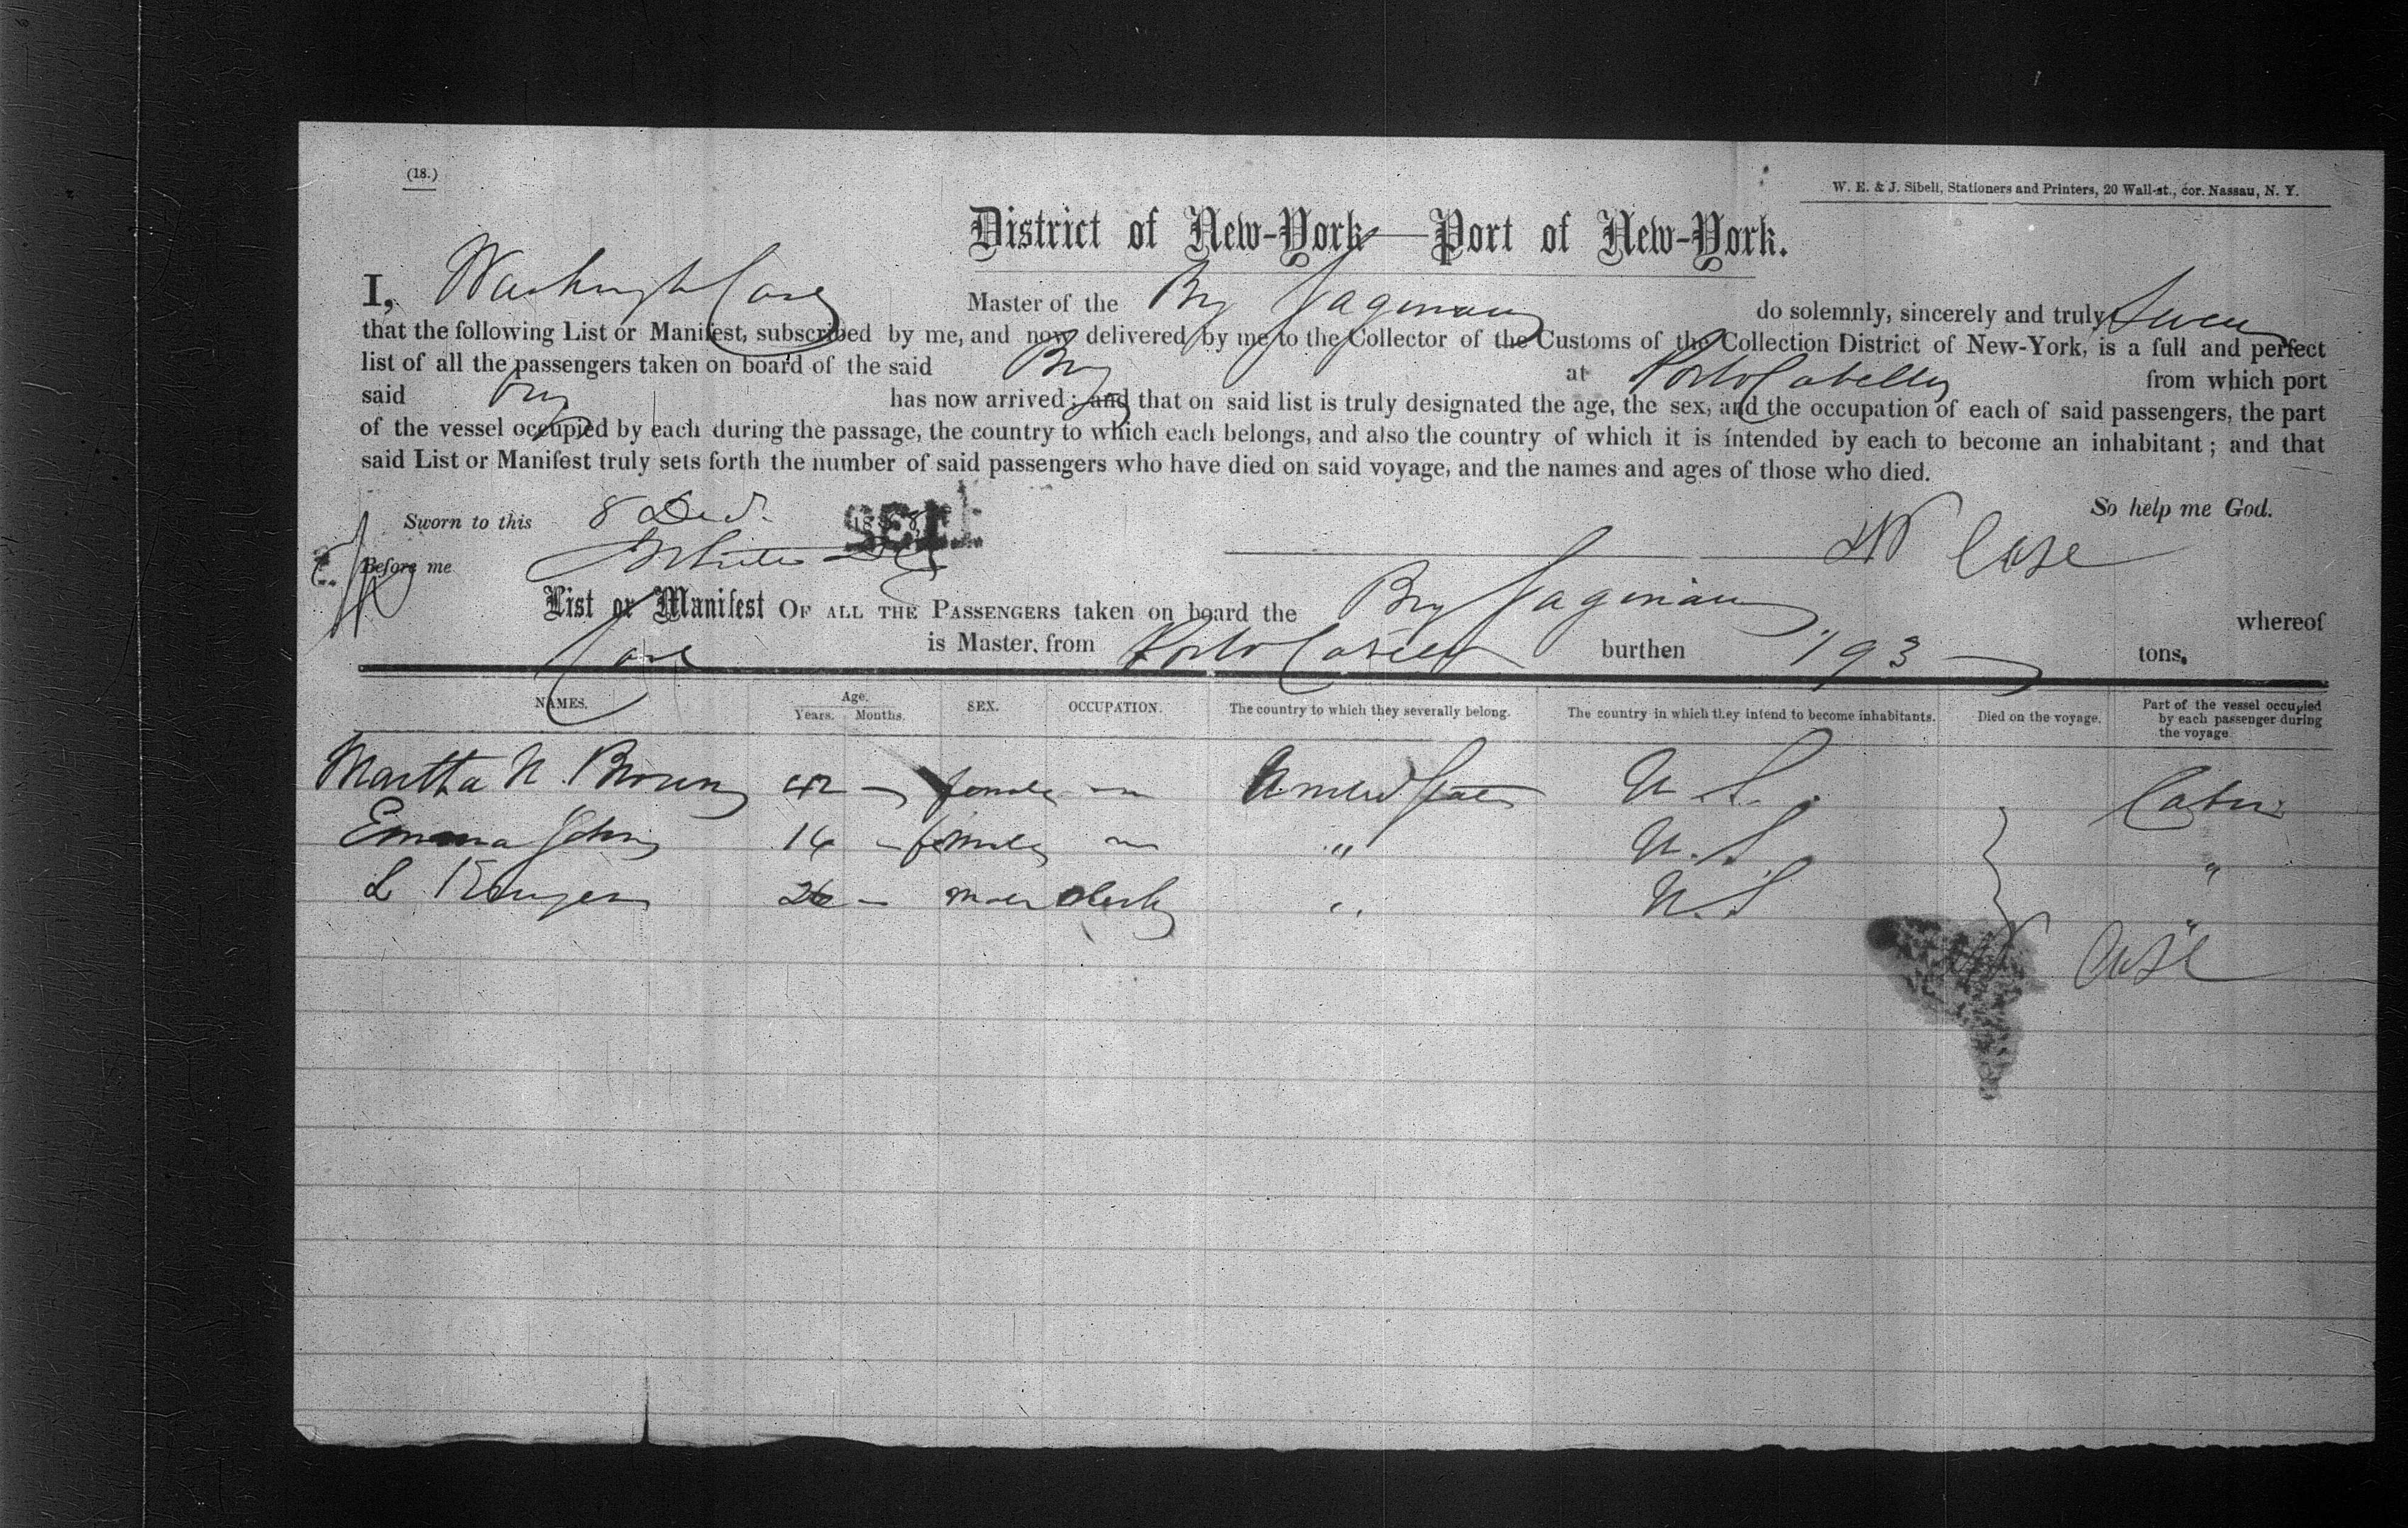 (18.)
W. E. & J. Sibell, Stationers and Printers, 20 Wall-st., cor. Nassau, N. Y.
District of New-York—Port of New-York.
I, Case Master of the Brig do solemnly, sincerely and truly Swear
that the following List or Manifest, subscribed by me, and now delivered by me to the Collector of the Customs of the Collection District of New-York, is a full and perfect
list of all the passengers taken on board of the said Brig at Porto Cabello from which port
said Brig has now arrived; and that on said list is truly designated the age, the sex, and the occupation of each of said passengers, the part
of the vessel occupied by each during the passage, the country to which each belongs, and also the country of which it is intended by each to become an inhabitant; and that
said List or Manifest truly sets forth the number of said passengers who have died on said voyage, and the names and ages of those who died.
So help me God.
Sworn to this 8 Dec. 18
W Case
Before me
List or Manifest OF ALL THE PASSENGERS taken on board the Brig whereof
Case is Master, from Porto Cabello burthen 193 tons.
NAMES. Age. Years. Months. SEX. OCCUPATION. The country to which they severally belong. The country in which they intend to become inhabitants. Died on the voyage. Part of the vessel occupied by each passenger during the voyage.
Martha N. Brown 42 — female — United States U S. Cabin
Emma John 16 — female — " U. S. "
L 26 — male Clerk " U. S "
W Case